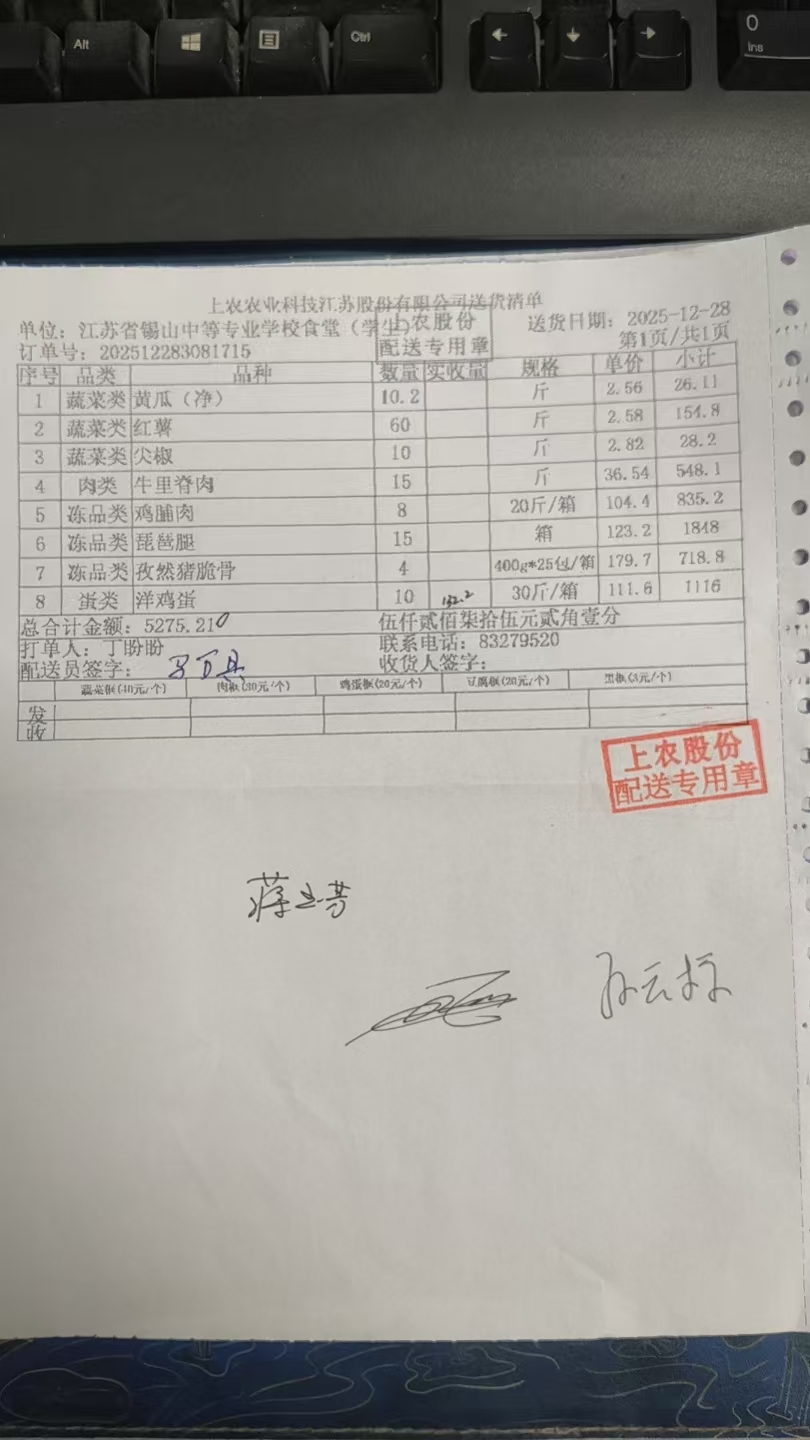 Alt
Ctrl
0
Ins
上农农业科技江苏股份有限公司送货清单
单位：江苏省锡山中等专业学校食堂（学生） 送货日期：2025-12-28
上农股份
配送专用章
订单号：202512283081715 第1页/共1页
序号 品类 品种 数量 实收量 规格 单价 小计
1 蔬菜类 黄瓜（净） 10.2 斤 2.56 26.11
2 蔬菜类 红薯 60 斤 2.58 154.8
3 蔬菜类 尖椒 10 斤 2.82 28.2
4 肉类 牛里脊肉 15 斤 36.54 548.1
5 冻品类 鸡脯肉 8 20斤/箱 104.4 835.2
6 冻品类 琵琶腿 15 箱 123.2 1848
7 冻品类 孜然猪脆骨 4 400g*25包/箱 179.7 718.8
8 蛋类 洋鸡蛋 10 30斤/箱 111.6 1116
总合计金额：5275.210 伍仟贰佰柒拾伍元贰角壹分
打单人：丁盼盼 联系电话：83279520
配送员签字： 收货人签字：
蔬菜框(40元/个) 肉框(30元/个) 鸡蛋框(20元/个) 豆腐框(20元/个) 黑板(3元/个)
发
收
上农股份
配送专用章